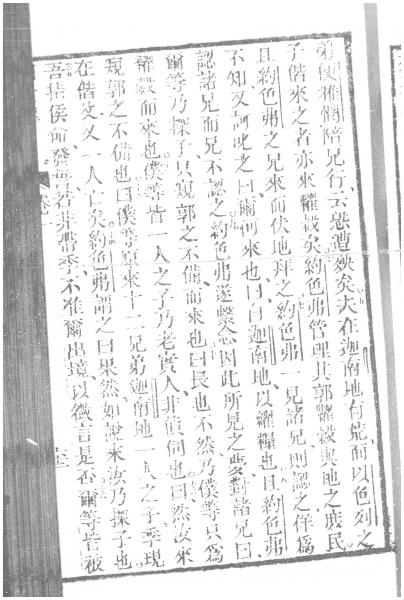 弟便雅憫陪兄行、云恐遭殃矣、夫在迦南地旬荒、而以色列之
子偕來之者亦來糴穀矣、約色弗管理其郭、糴穀與地之庶民、
且約色弗之兄來、而伏地拜之、約色弗一見諸兄、則認之、佯為
不知、又訶叱之曰、爾何來也、曰、自迦南地、以糴糧也、且約色弗
認諸兄、而兄不認之、約色弗遂繫念因此所見之夢、對諸兄曰、
爾等乃探子、只窺郭之不備、而來也、曰、長也、不然、乃僕等只為
糴穀而來也、僕等皆一人之子、乃老實人、非偵伺也、曰、然、汝來
窺郭之不備也、曰、僕等原來十二兄弟、迦南地一人之子、季現
在偕父、又一人亡矣、約色弗謂之曰、果然、如說來、汝乃探子也、
吾指侯命、發誓、若非帶季、不准爾出境、以徵言是否、爾等皆被